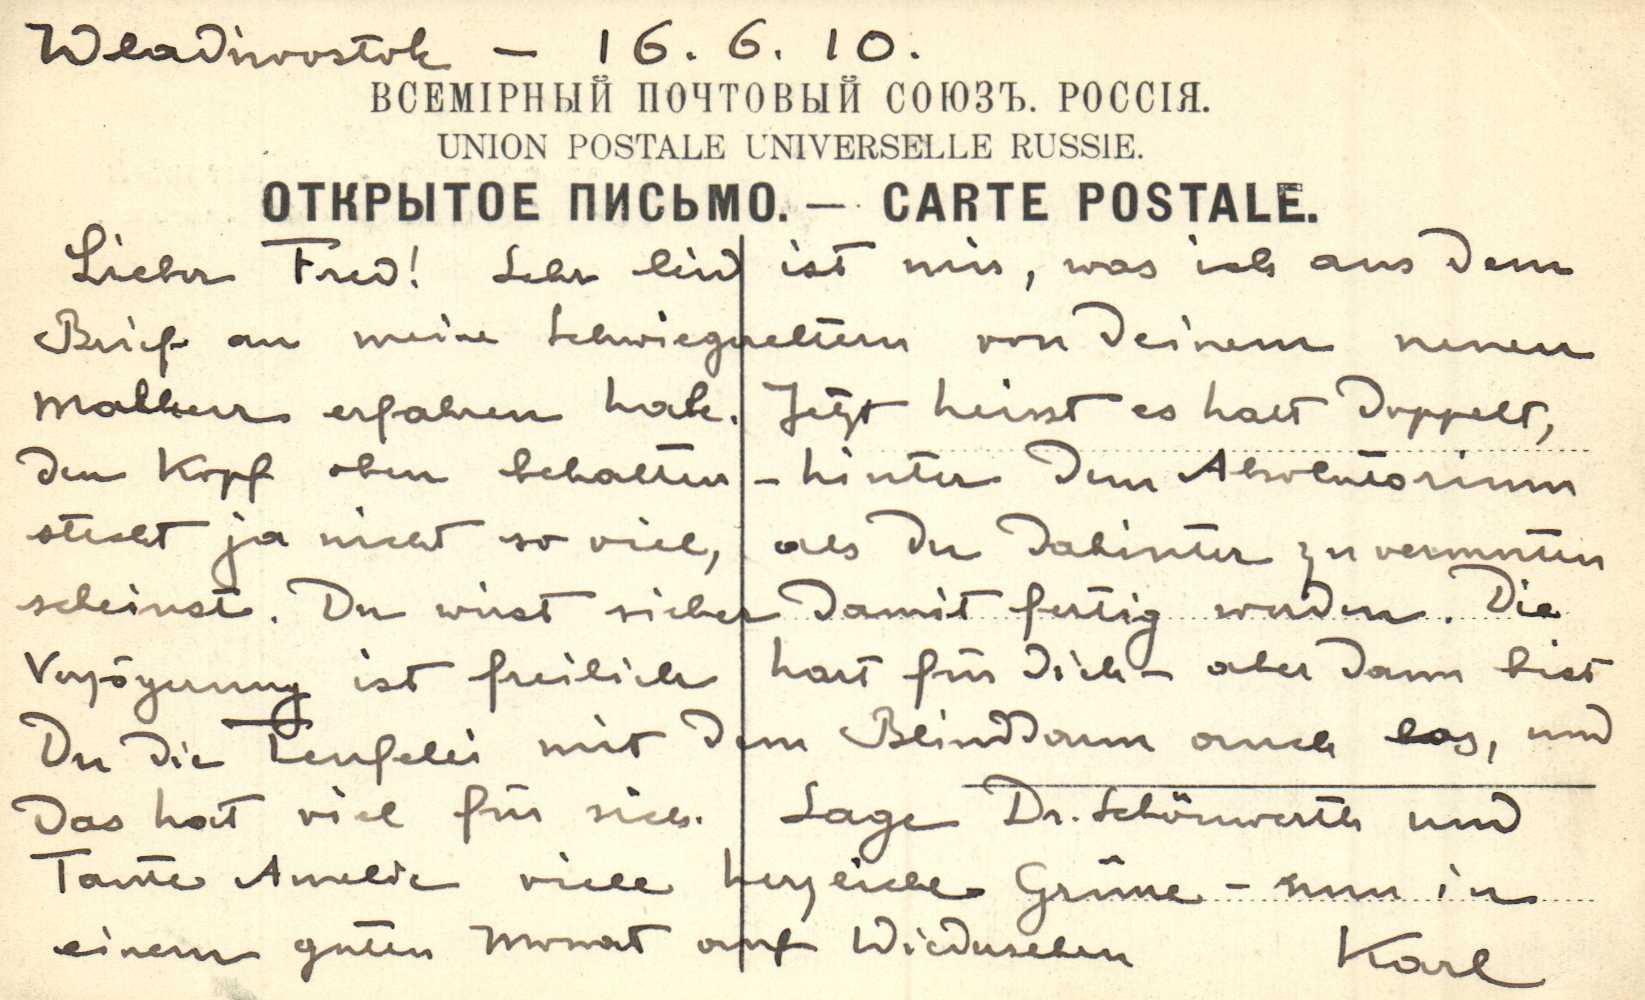 Wladiwostok – 16. 6. 10.
ВСЕМІРНЫЙ ПОЧТОВЫЙ СОЮЗЪ. РОССІЯ.
UNION POSTALE UNIVERSELLE RUSSIE.
ОТКРЫТОЕ ПИСЬМО. — CARTE POSTALE.
Lieber Fred! Sehr leid ist mir, was ich aus dem
Brief an meine Schwiegereltern von Deinem neuen
Malheur erfahren habe. Jetzt heisst es halt doppelt,
den Kopf oben behalten – hinter dem Absolutorium
steckt ja nicht so viel, als Du dahinter zu vermuten
scheinst. Du wirst sicher damit fertig werden. Die
Verzögerung ist freilich hart für Dich – aber dann bist
Du die Teufelei mit dem Blinddarm auch los, und
das hat viel für sich. Sage Dr. Schönwerth und
Tante Amelie viele herzliche Grüsse – nun in
einem guten Monat auf Wiedersehen Karl